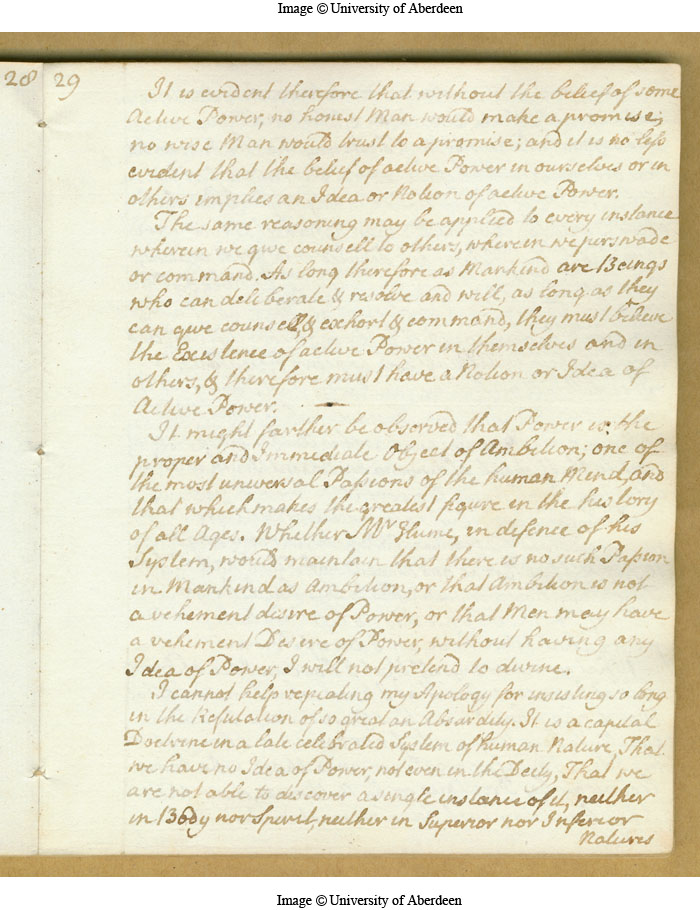 Image © University of Aberdeen
28 29
It is evident therefore that without the belief of some
Active Power, no honest Man would make a promise;
no wise Man would trust to a promise; and it is no less
evident that the belief of active Power in ourselves or in
others implies an Idea or Notion of active Power.
The same reasoning may be applied to every instance
wherein we give counsell to others, wherein we perswade
or command. As long therefore as Mankind are Beings
who can deliberate & resolve and will, as long as they
can give counsell, & exhort & command, they must believe
the Existence of active Power in themselves and in
others, & therefore must have a Notion or Idea of
Active Power.
It might farther be observed that Power is the
proper and Immediate Object of Ambition; one of
the most universal Passions of the human Mind, and
that which makes the greatest figure in the history
of all Ages. Whether Mr Hume, in defence of his
System, would maintain that there is no such Passion
in Mankind as Ambition, or that Ambition is not
a vehement desire of Power, or that Men may have
a vehement Desire of Power, without having any
Idea of Power, I will not pretend to divine.
I cannot help repeating my Apology for insisting so long
in the Refutation of so great an Absurdity. It is a capital
Doctrine in a late celebrated System of human Nature, That
we have no Idea of Power, not even in the Deity, That we
are not able to discover a single instance of it, neither
in Body nor Spirit, neither in Superior nor Inferior
Natures
Image © University of Aberdeen